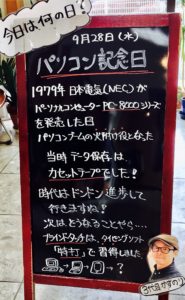 今日は何の日?
9月28日(木)
パソコン記念日
1979年 日本電気(NEC)が
パーソナルコンピューターPC-8000シリーズ
を発売した日
パソコンブームの火付け役となった
当時データ保存は
カセットテープでした!
時代はドンドン進歩して
行きますね!
次はどうなることやら…
ブラインドタッチは、タイピングソフト
「特打」で習得しました
→ → → ?
3代目かずのり